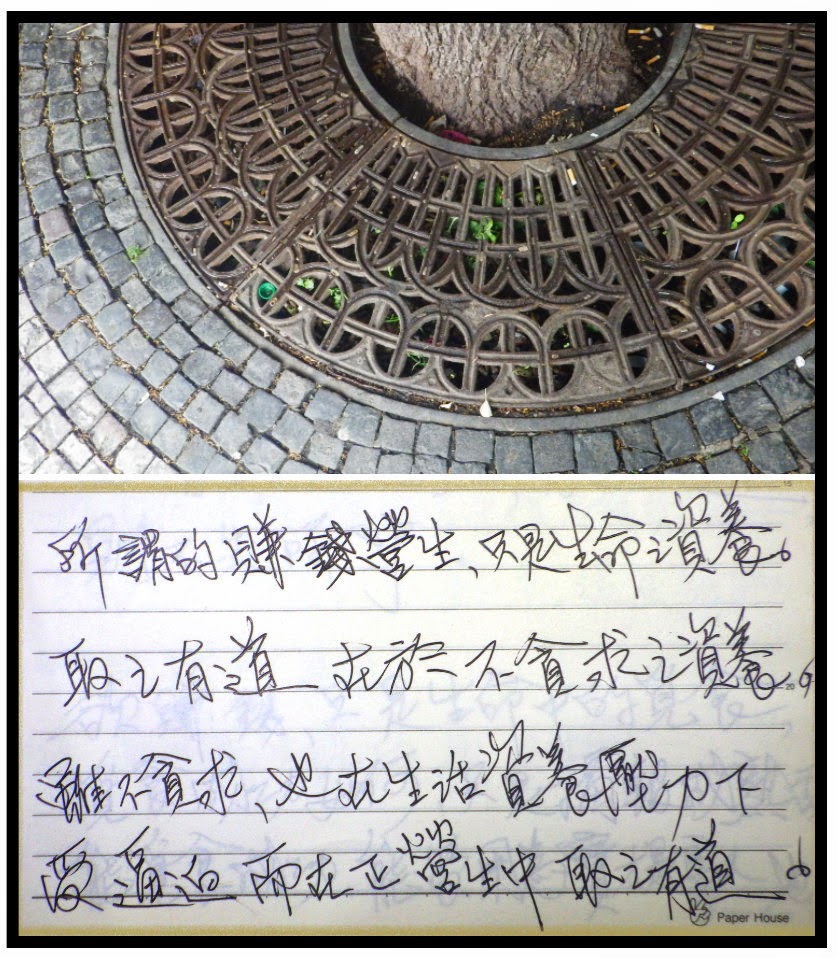 所謂的賺錢營生、只是生命之資養。
取之有道 在於不貪求之資養。
雖不貪求、也在生活資養壓力下
受逼迫 而在正營生中 取之有道。
15
20
Paper House